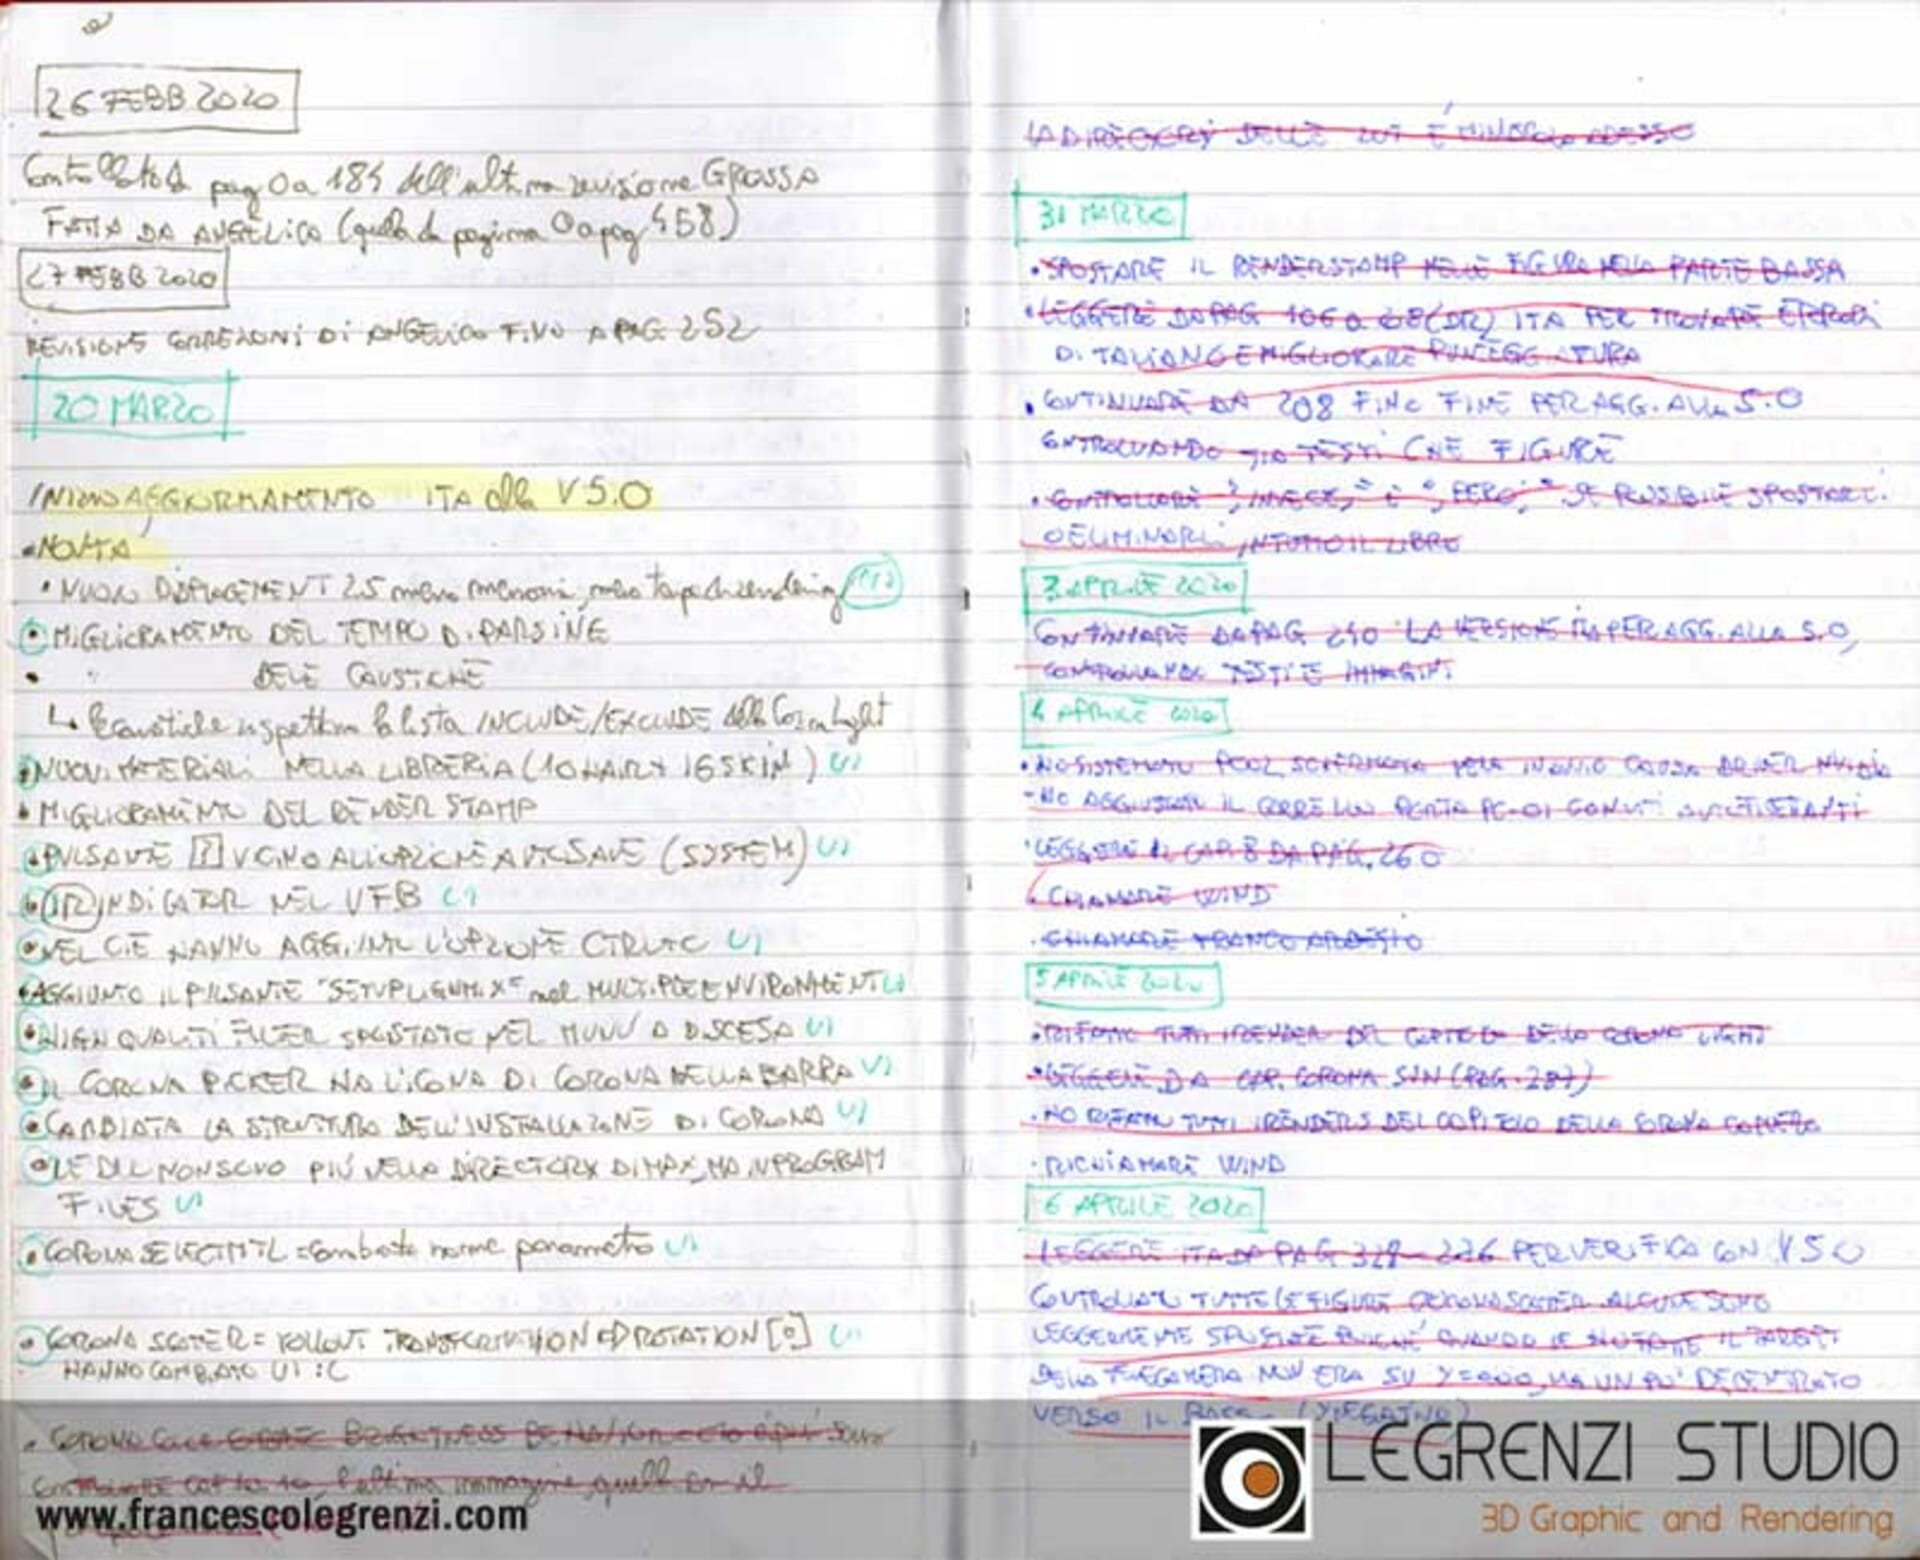 26 FEBB 2020
Controllato da pag 0 a 184 dell'ultima revisione GROSSA
FATTA DA ANGELICO (quella da pagina 0 a pag 458)
27 FEBB 2020
REVISIONE CORREZIONI DI ANGELICO FINO A PAG 252
20 MARZO
INIZIO AGGIORNAMENTO ITA alla V 5.0
NOVITA
• NUOVO DISPLACEMENT 2.5 meno memoria, meno tempo di rendering
• MIGLIORAMENTO DEL TEMPO DI PARSING
• " DELLE CAUSTICHE
↳ le caustiche rispettano la lista INCLUDE/EXCLUDE della Corona Light
• NUOVI MATERIALI NELLA LIBRERIA (10 HAIR, 16 SKIN)
• MIGLIORAMENTO DEL RENDER STAMP
• PULSANTE [?] VICINO ALL'OPZIONE AUTOSAVE (SYSTEM)
• INDICATOR NEL VFB
• NEL CIE HANNO AGGIUNTO L'OPZIONE CTRL+C
• AGGIUNTO IL PULSANTE "SETUP LIGHTMIX" nel MULTIPLE ENVIRONMENT
• HIGH QUALITY FILTER SPOSTATO NEL MENU A DISCESA
• IL CORONA PICKER HA L'ICONA DI CORONA NELLA BARRA
• CAMBIATA LA STRUTTURA DELL'INSTALLAZIONE DI CORONA
• LE DLL NON SONO PIÙ NELLA DIRECTORY DI MAX, MA IN PROGRAM
FILES
• CORONA SELECT MTL = cambiato nome parametro
• CORONA SCATTER = ROLLOUT TRANSFORMATION ED ROTATION [°]
HANNO CAMBIATO
l'ultima immagine, quella con il
LA DIRECTORY DELLE LUT È MINUSCOLO ADESSO
31 MARZO
• SPOSTARE IL RENDERSTAMP NELLE FIGURE NELLA PARTE BASSA
• LEGGERE DA PAG 106 a ITA PER TROVARE ERRORI
DI ITALIANO E MIGLIORARE PUNTEGGIATURA
• CONTINUARE DA 208 FINO FINE PER AGG. ALLA 5.0
CONTROLLANDO SIA TESTI CHE FIGURE
• CONTROLLARE ", INVECE," E ", PERÒ," SE POSSIBILE SPOSTARLI
O ELIMINARLI IN TUTTO IL LIBRO
3 APRILE 2020
CONTINUARE DA PAG 240 LA VERSIONE ITA PER AGG. ALLA 5.0,
CONTROLLANDO TESTI E IMMAGINI
4 APRILE 2020
DRIVER NVIDIA
• LEGGERE IL CAP. 8 DA PAG. 260
• CHIAMARE WIND
• CHIAMARE FRANCO
5 APRILE 2020
• RIFATTO TUTTI I RENDER DEL CAPITOLO DELLA CORONA LIGHT
• LEGGERE DA CAP. CORONA SUN (PAG. 287)
• HO RIFATTO TUTTI I RENDERS DEL CAPITOLO DELLA CORONA CAMERA
• RICHIAMARE WIND
6 APRILE 2020
LEGGERE ITA DA PAG 328 - 336 PER VERIFICA CON V 5.0
CONTROLLARE TUTTE LE FIGURE CORONA SCATTER ALCUNE SONO
LEGGERMENTE SPOSTATE POICHÉ QUANDO LE HO FATTE IL TARGET
DELLA TELECAMERA NON ERA SU Y=0,00, MA UN PO' DECENTRATO
VERSO IL BASSO (Y NEGATIVO)
www.francescolegrenzi.com
LEGRENZI STUDIO
3D Graphic and Rendering